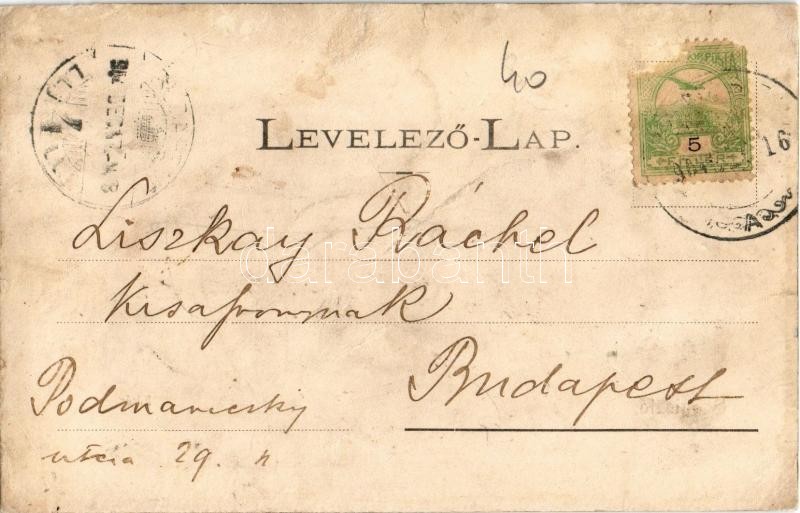 40
LEVELEZŐ-LAP.
5
16
Liszkay Ráchel
Kisasszonynak
Budapest
Podmaniczky
utcza 29. II
darabanth